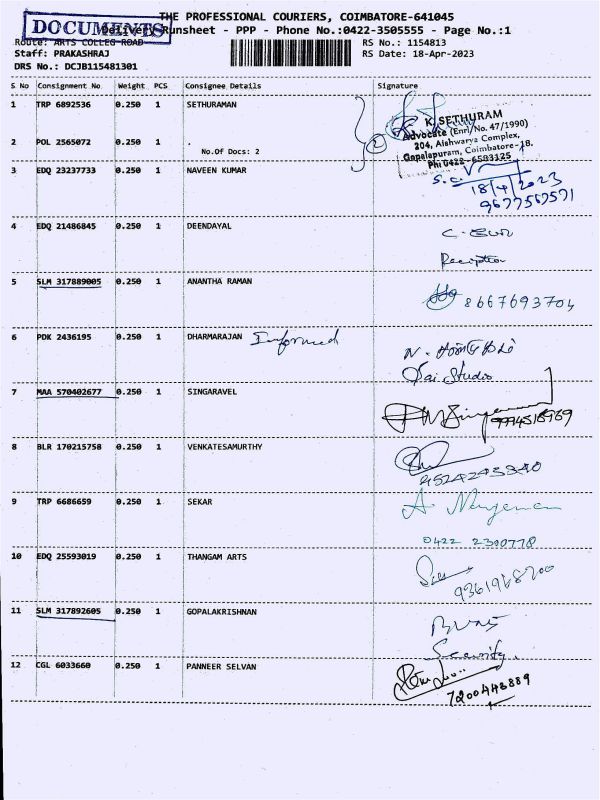 THE PROFESSIONAL COURIERS, COIMBATORE-641045
DOCUMENTS
Delivery Runsheet - PPP - Phone No.:0422-3505555 - Page No.:1
Route: ARTS COLLEG ROAD
RS No.: 1154813
Staff: PRAKASHRAJ
RS Date: 18-Apr-2023
DRS No.: DCJB115481301
S No Consignment No Weight PCS Consignee Details Signature
1 TRP 6892536 0.250 1 SETHURAMAN
K. SETHURAM
Advocate (Enrl/No. 47/1990)
204, Aishwarya Complex,
Gopalapuram, Coimbatore-18.
Ph: 0422-6583125
2 POL 2565072 0.250 1 .
No.Of Docs: 2
2
3 EDQ 23237733 0.250 1 NAVEEN KUMAR
18/4/2023
9677567571
4 EDQ 21486845 0.250 1 DEENDAYAL
Reception
5 SLM 317889005 0.250 1 ANANTHA RAMAN
8667693704
6 PDK 2436195 0.250 1 DHARMARAJAN Informed
Sai Studio
7 MAA 570402677 0.250 1 SINGARAVEL
8 BLR 170215758 0.250 1 VENKATESAMURTHY
9 TRP 6686659 0.250 1 SEKAR
0422 2300778
10 EDQ 25593019 0.250 1 THANGAM ARTS
11 SLM 317892605 0.250 1 GOPALAKRISHNAN
Security.
12 CGL 6033660 0.250 1 PANNEER SELVAN
7200448889